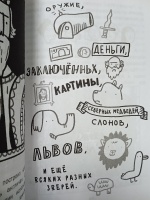 ОРУЖИЕ,
ДЕНЬГИ,
ЗАКЛЮЧЁННЫХ,
КАРТИНЫ,
СЕВЕРНЫХ МЕДВЕДЕЙ,
СЛОНОВ,
ЛЬВОВ,
И ЕЩЁ
ВСЯКИХ РАЗНЫХ
ЗВЕРЕЙ.